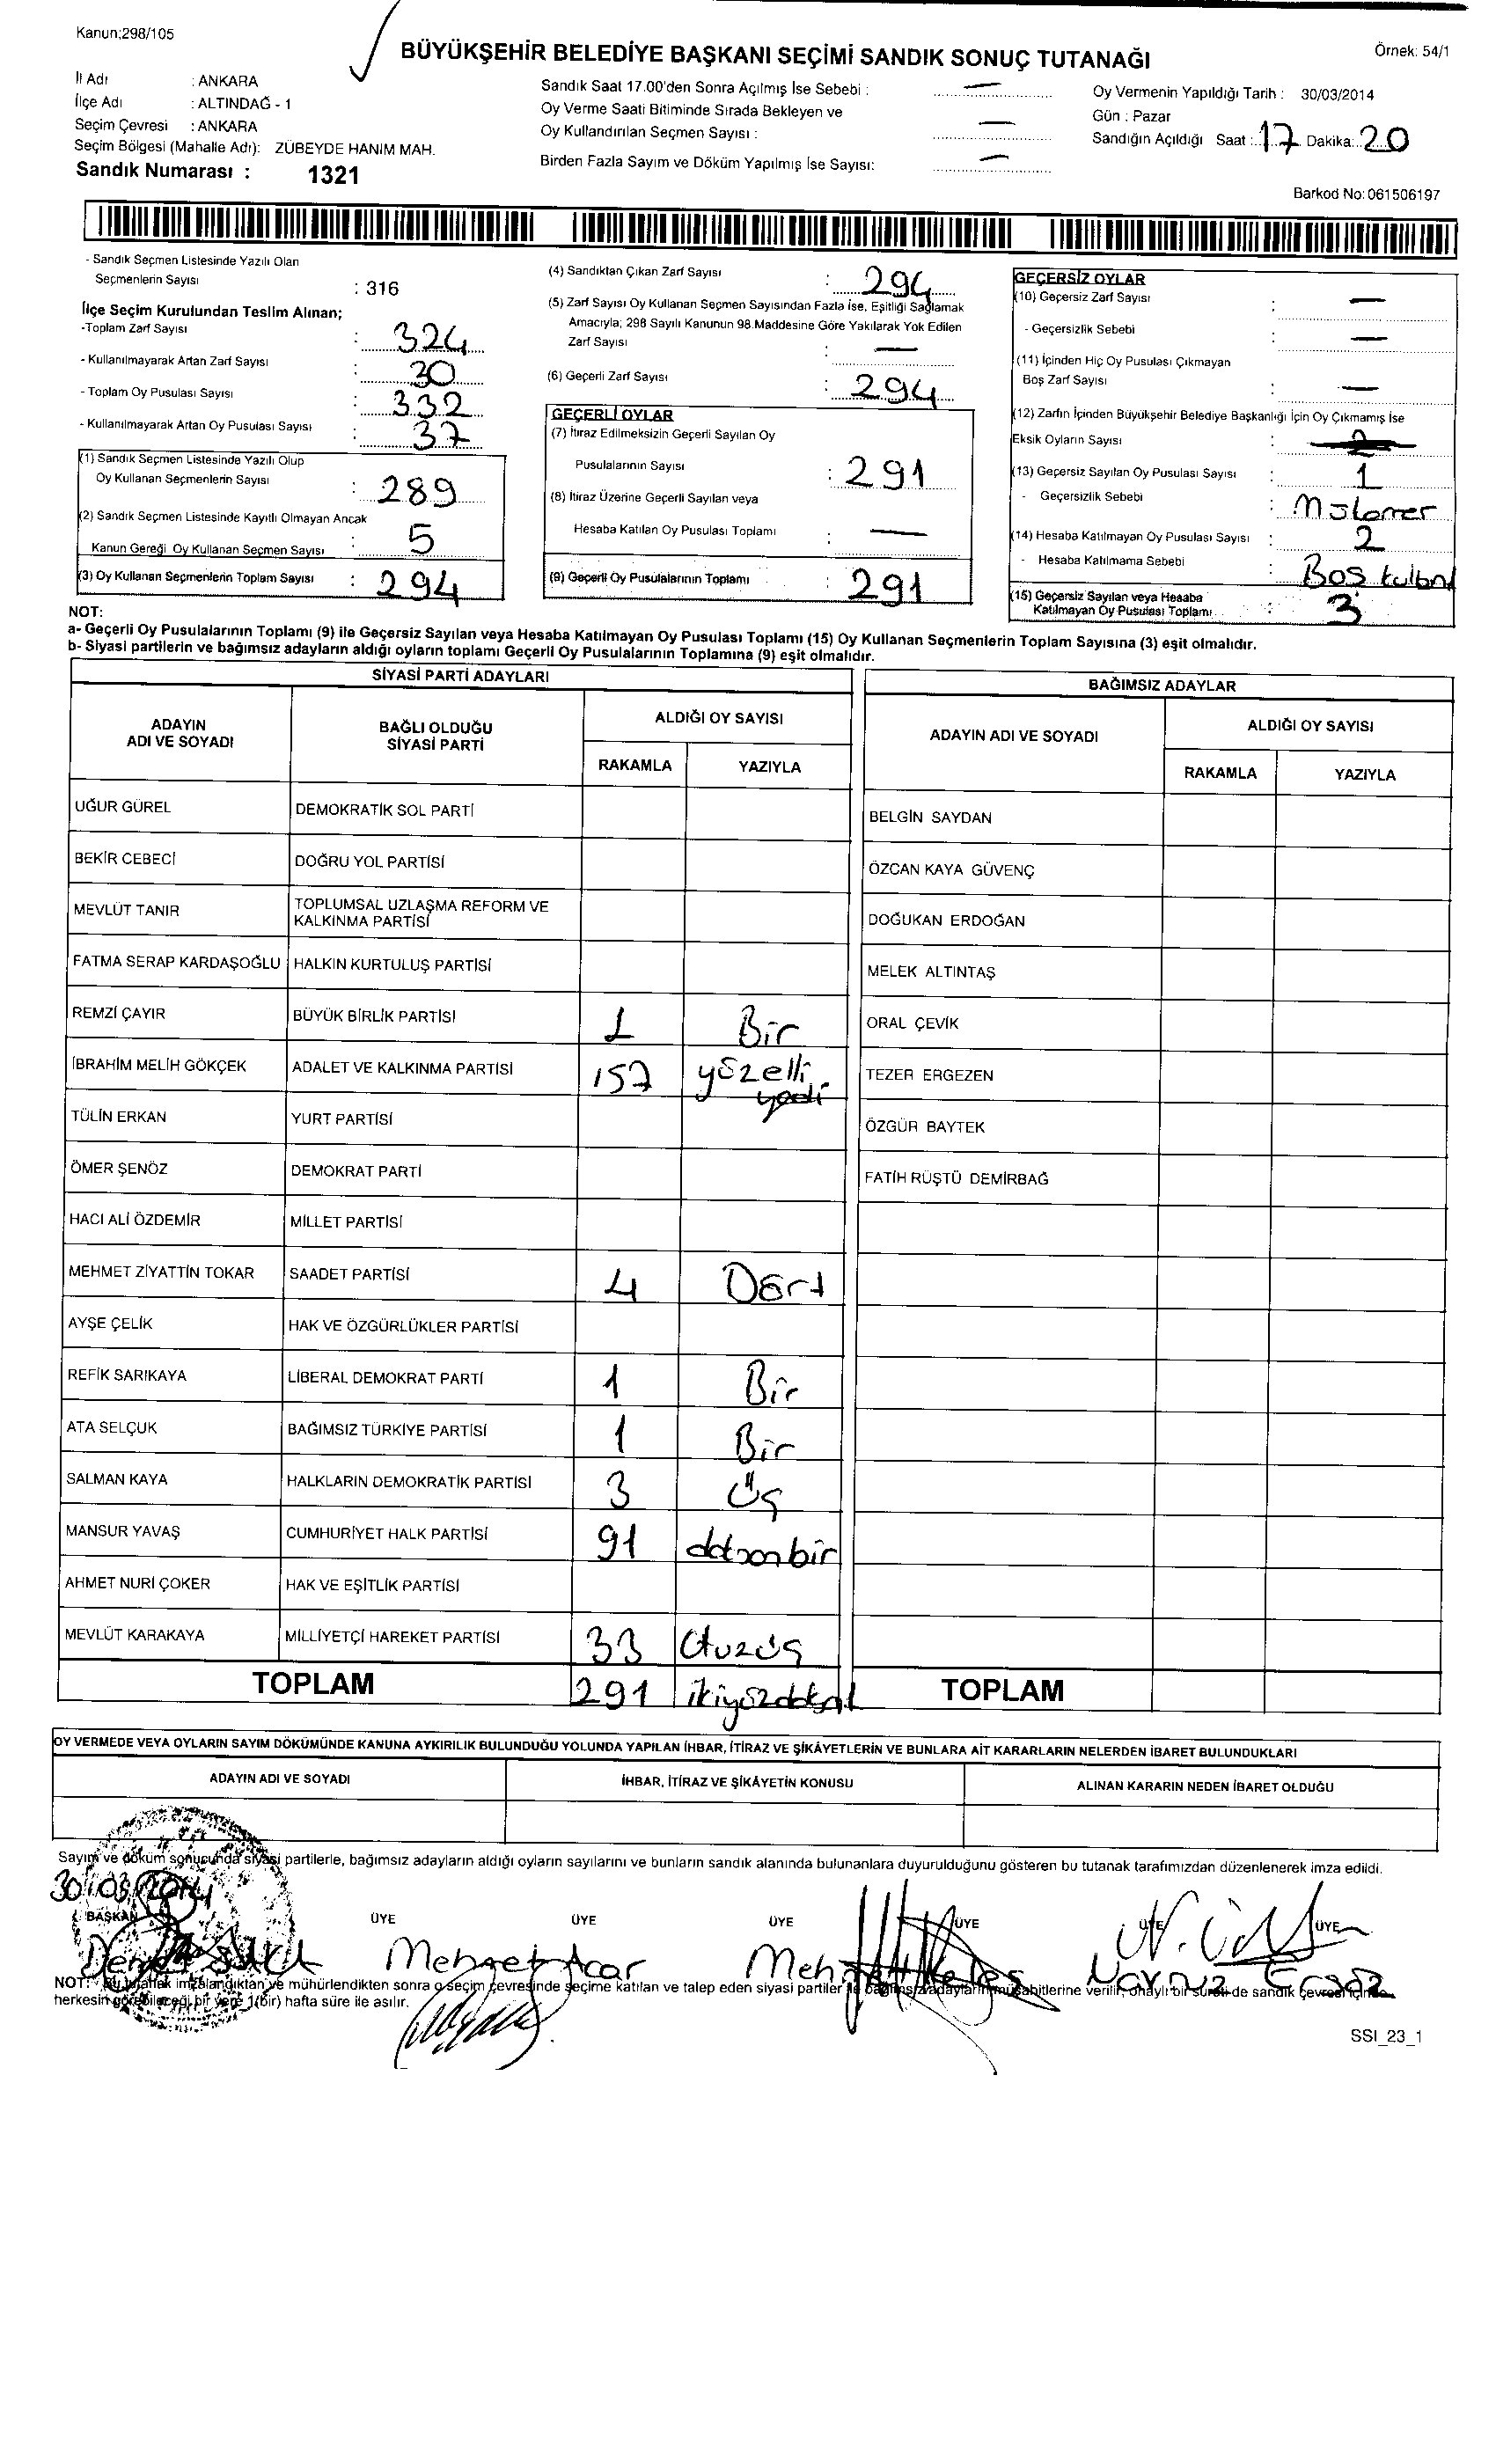 Kanun;298/105
BÜYÜKŞEHİR BELEDİYE BAŞKANI SEÇİMİ SANDIK SONUÇ TUTANAĞI
Örnek: 54/1
İl Adı : ANKARA
İlçe Adı : ALTINDAĞ - 1
Seçim Çevresi : ANKARA
Seçim Bölgesi (Mahalle Adı): ZÜBEYDE HANIM MAH.
Sandık Numarası : 1321
Sandık Saat 17.00'den Sonra Açılmış İse Sebebi : —
Oy Verme Saati Bitiminde Sırada Bekleyen ve
Oy Kullandırılan Seçmen Sayısı : —
Birden Fazla Sayım ve Döküm Yapılmış İse Sayısı: —
Oy Vermenin Yapıldığı Tarih : 30/03/2014
Gün : Pazar
Sandığın Açıldığı Saat : 17 Dakika: 20
Barkod No:061506197
- Sandık Seçmen Listesinde Yazılı Olan
Seçmenlerin Sayısı : 316
İlçe Seçim Kurulundan Teslim Alınan;
-Toplam Zarf Sayısı : 324
- Kullanılmayarak Artan Zarf Sayısı : 30
- Toplam Oy Pusulası Sayısı : 332
- Kullanılmayarak Artan Oy Pusulası Sayısı : 37
(1) Sandık Seçmen Listesinde Yazılı Olup
Oy Kullanan Seçmenlerin Sayısı : 289
(2) Sandık Seçmen Listesinde Kayıtlı Olmayan Ancak
Kanun Gereği Oy Kullanan Seçmen Sayısı : 5
(3) Oy Kullanan Seçmenlerin Toplam Sayısı : 294
(4) Sandıktan Çıkan Zarf Sayısı : 294
(5) Zarf Sayısı Oy Kullanan Seçmen Sayısından Fazla İse, Eşitliği Sağlamak
Amacıyla; 298 Sayılı Kanunun 98.Maddesine Göre Yakılarak Yok Edilen
Zarf Sayısı : —
(6) Geçerli Zarf Sayısı : 294
GEÇERLİ OYLAR
(7) İtiraz Edilmeksizin Geçerli Sayılan Oy
Pusulalarının Sayısı : 291
(8) İtiraz Üzerine Geçerli Sayılan veya
Hesaba Katılan Oy Pusulası Toplamı : —
(9) Geçerli Oy Pusulalarının Toplamı : 291
GEÇERSİZ OYLAR
(10) Geçersiz Zarf Sayısı : —
- Geçersizlik Sebebi : —
(11) İçinden Hiç Oy Pusulası Çıkmayan
Boş Zarf Sayısı : —
(12) Zarfın İçinden Büyükşehir Belediye Başkanlığı İçin Oy Çıkmamış İse
Eksik Oyların Sayısı :
(13) Geçersiz Sayılan Oy Pusulası Sayısı : 1
- Geçersizlik Sebebi :
(14) Hesaba Katılmayan Oy Pusulası Sayısı : 2
- Hesaba Katılmama Sebebi : Boş
(15) Geçersiz Sayılan veya Hesaba
Katılmayan Oy Pusulası Toplamı : 3
NOT:
a- Geçerli Oy Pusulalarının Toplamı (9) ile Geçersiz Sayılan veya Hesaba Katılmayan Oy Pusulası Toplamı (15) Oy Kullanan Seçmenlerin Toplam Sayısına (3) eşit olmalıdır.
b- Siyasi partilerin ve bağımsız adayların aldığı oyların toplamı Geçerli Oy Pusulalarının Toplamına (9) eşit olmalıdır.
SİYASİ PARTİ ADAYLARI
ADAYIN ADI VE SOYADI BAĞLI OLDUĞU SİYASİ PARTİ ALDIĞI OY SAYISI
RAKAMLA YAZIYLA
UĞUR GÜREL DEMOKRATİK SOL PARTİ
BEKİR CEBECİ DOĞRU YOL PARTİSİ
MEVLÜT TANIR TOPLUMSAL UZLAŞMA REFORM VE KALKINMA PARTİSİ
FATMA SERAP KARDAŞOĞLU HALKIN KURTULUŞ PARTİSİ
REMZİ ÇAYIR BÜYÜK BİRLİK PARTİSİ 1 Bir
İBRAHİM MELİH GÖKÇEK ADALET VE KALKINMA PARTİSİ 157 yüzelli yedi
TÜLİN ERKAN YURT PARTİSİ
ÖMER ŞENÖZ DEMOKRAT PARTİ
HACI ALİ ÖZDEMİR MİLLET PARTİSİ
MEHMET ZİYATTİN TOKAR SAADET PARTİSİ 4 Dört
AYŞE ÇELİK HAK VE ÖZGÜRLÜKLER PARTİSİ
REFİK SARIKAYA LİBERAL DEMOKRAT PARTİ 1 Bir
ATA SELÇUK BAĞIMSIZ TÜRKİYE PARTİSİ 1 Bir
SALMAN KAYA HALKLARIN DEMOKRATİK PARTİSİ 3 Üç
MANSUR YAVAŞ CUMHURİYET HALK PARTİSİ 91 doksanbir
AHMET NURİ ÇOKER HAK VE EŞİTLİK PARTİSİ
MEVLÜT KARAKAYA MİLLİYETÇİ HAREKET PARTİSİ 33 Otuzüç
TOPLAM 291
BAĞIMSIZ ADAYLAR
ADAYIN ADI VE SOYADI ALDIĞI OY SAYISI
RAKAMLA YAZIYLA
BELGİN SAYDAN
ÖZCAN KAYA GÜVENÇ
DOĞUKAN ERDOĞAN
MELEK ALTINTAŞ
ORAL ÇEVİK
TEZER ERGEZEN
ÖZGÜR BAYTEK
FATİH RÜŞTÜ DEMİRBAĞ
TOPLAM
OY VERMEDE VEYA OYLARIN SAYIM DÖKÜMÜNDE KANUNA AYKIRILIK BULUNDUĞU YOLUNDA YAPILAN İHBAR, İTİRAZ VE ŞİKÂYETLERİN VE BUNLARA AİT KARARLARIN NELERDEN İBARET BULUNDUKLARI
ADAYIN ADI VE SOYADI İHBAR, İTİRAZ VE ŞİKÂYETİN KONUSU ALINAN KARARIN NEDEN İBARET OLDUĞU
Sayım ve döküm sonucunda siyasi partilerle, bağımsız adayların aldığı oyların sayılarını ve bunların sandık alanında bulunanlara duyurulduğunu gösteren bu tutanak tarafımızdan düzenlenerek imza edildi.
30/03/2014
BAŞKAN ÜYE ÜYE ÜYE ÜYE ÜYE ÜYE
Mehmet Acar Mehmet Keleş
NOT: Bu tutanak imzalandıktan ve mühürlendikten sonra o seçim çevresinde seçime katılan ve talep eden siyasi partiler ile bağımsız adayların müşahitlerine verilir, onaylı bir sureti de sandık çevresi içinde
herkesin görebileceği bir yere 1(bir) hafta süre ile asılır.
SSI_23_1